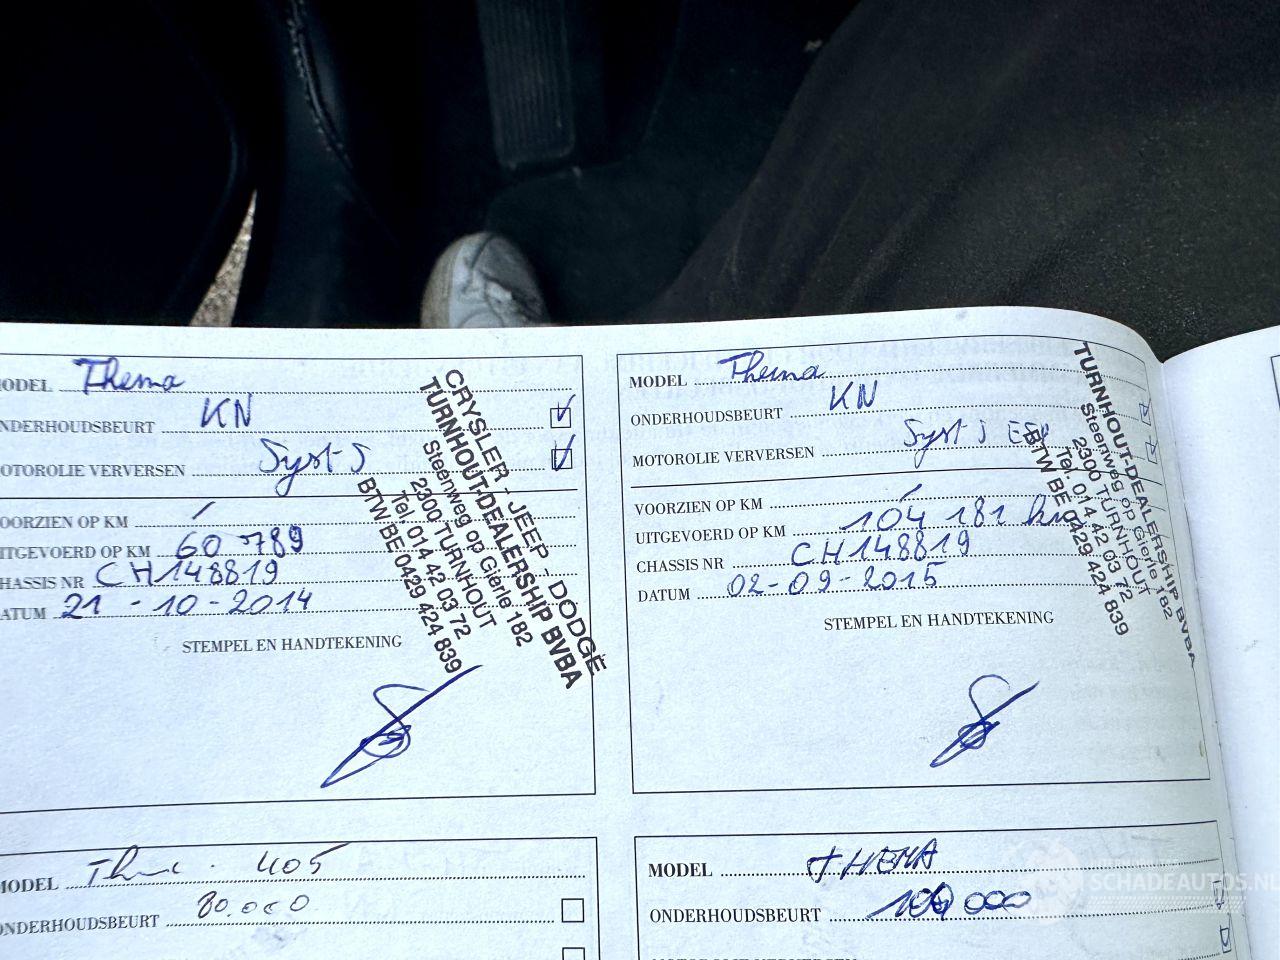 MODEL Thema
ONDERHOUDSBEURT KN
MOTOROLIE VERVERSEN Syst 5
VOORZIEN OP KM /
UITGEVOERD OP KM 60 789
CHASSIS NR CH148819
DATUM 21 - 10 - 2014
STEMPEL EN HANDTEKENING
CRYSLER - JEEP - DODGE
TURNHOUT-DEALERSHIP BVBA
Steenweg op Gierle 182
2300 TURNHOUT
Tel. 014 42 03 72
BTW BE 0429 424 839
MODEL Thema
ONDERHOUDSBEURT KN
MOTOROLIE VERVERSEN Syst 5
VOORZIEN OP KM /
UITGEVOERD OP KM 104 181 km
CHASSIS NR CH148819
DATUM 02-09-2015
STEMPEL EN HANDTEKENING
TURNHOUT-DEALERSHIP BVBA
Steenweg op Gierle 182
2300 TURNHOUT
Tel. 014 42 03 72
BTW BE 0429 424 839
MODEL 405
ONDERHOUDSBEURT 80.000
MODEL THEMA
ONDERHOUDSBEURT 000
SCHADEAUTOS.NL